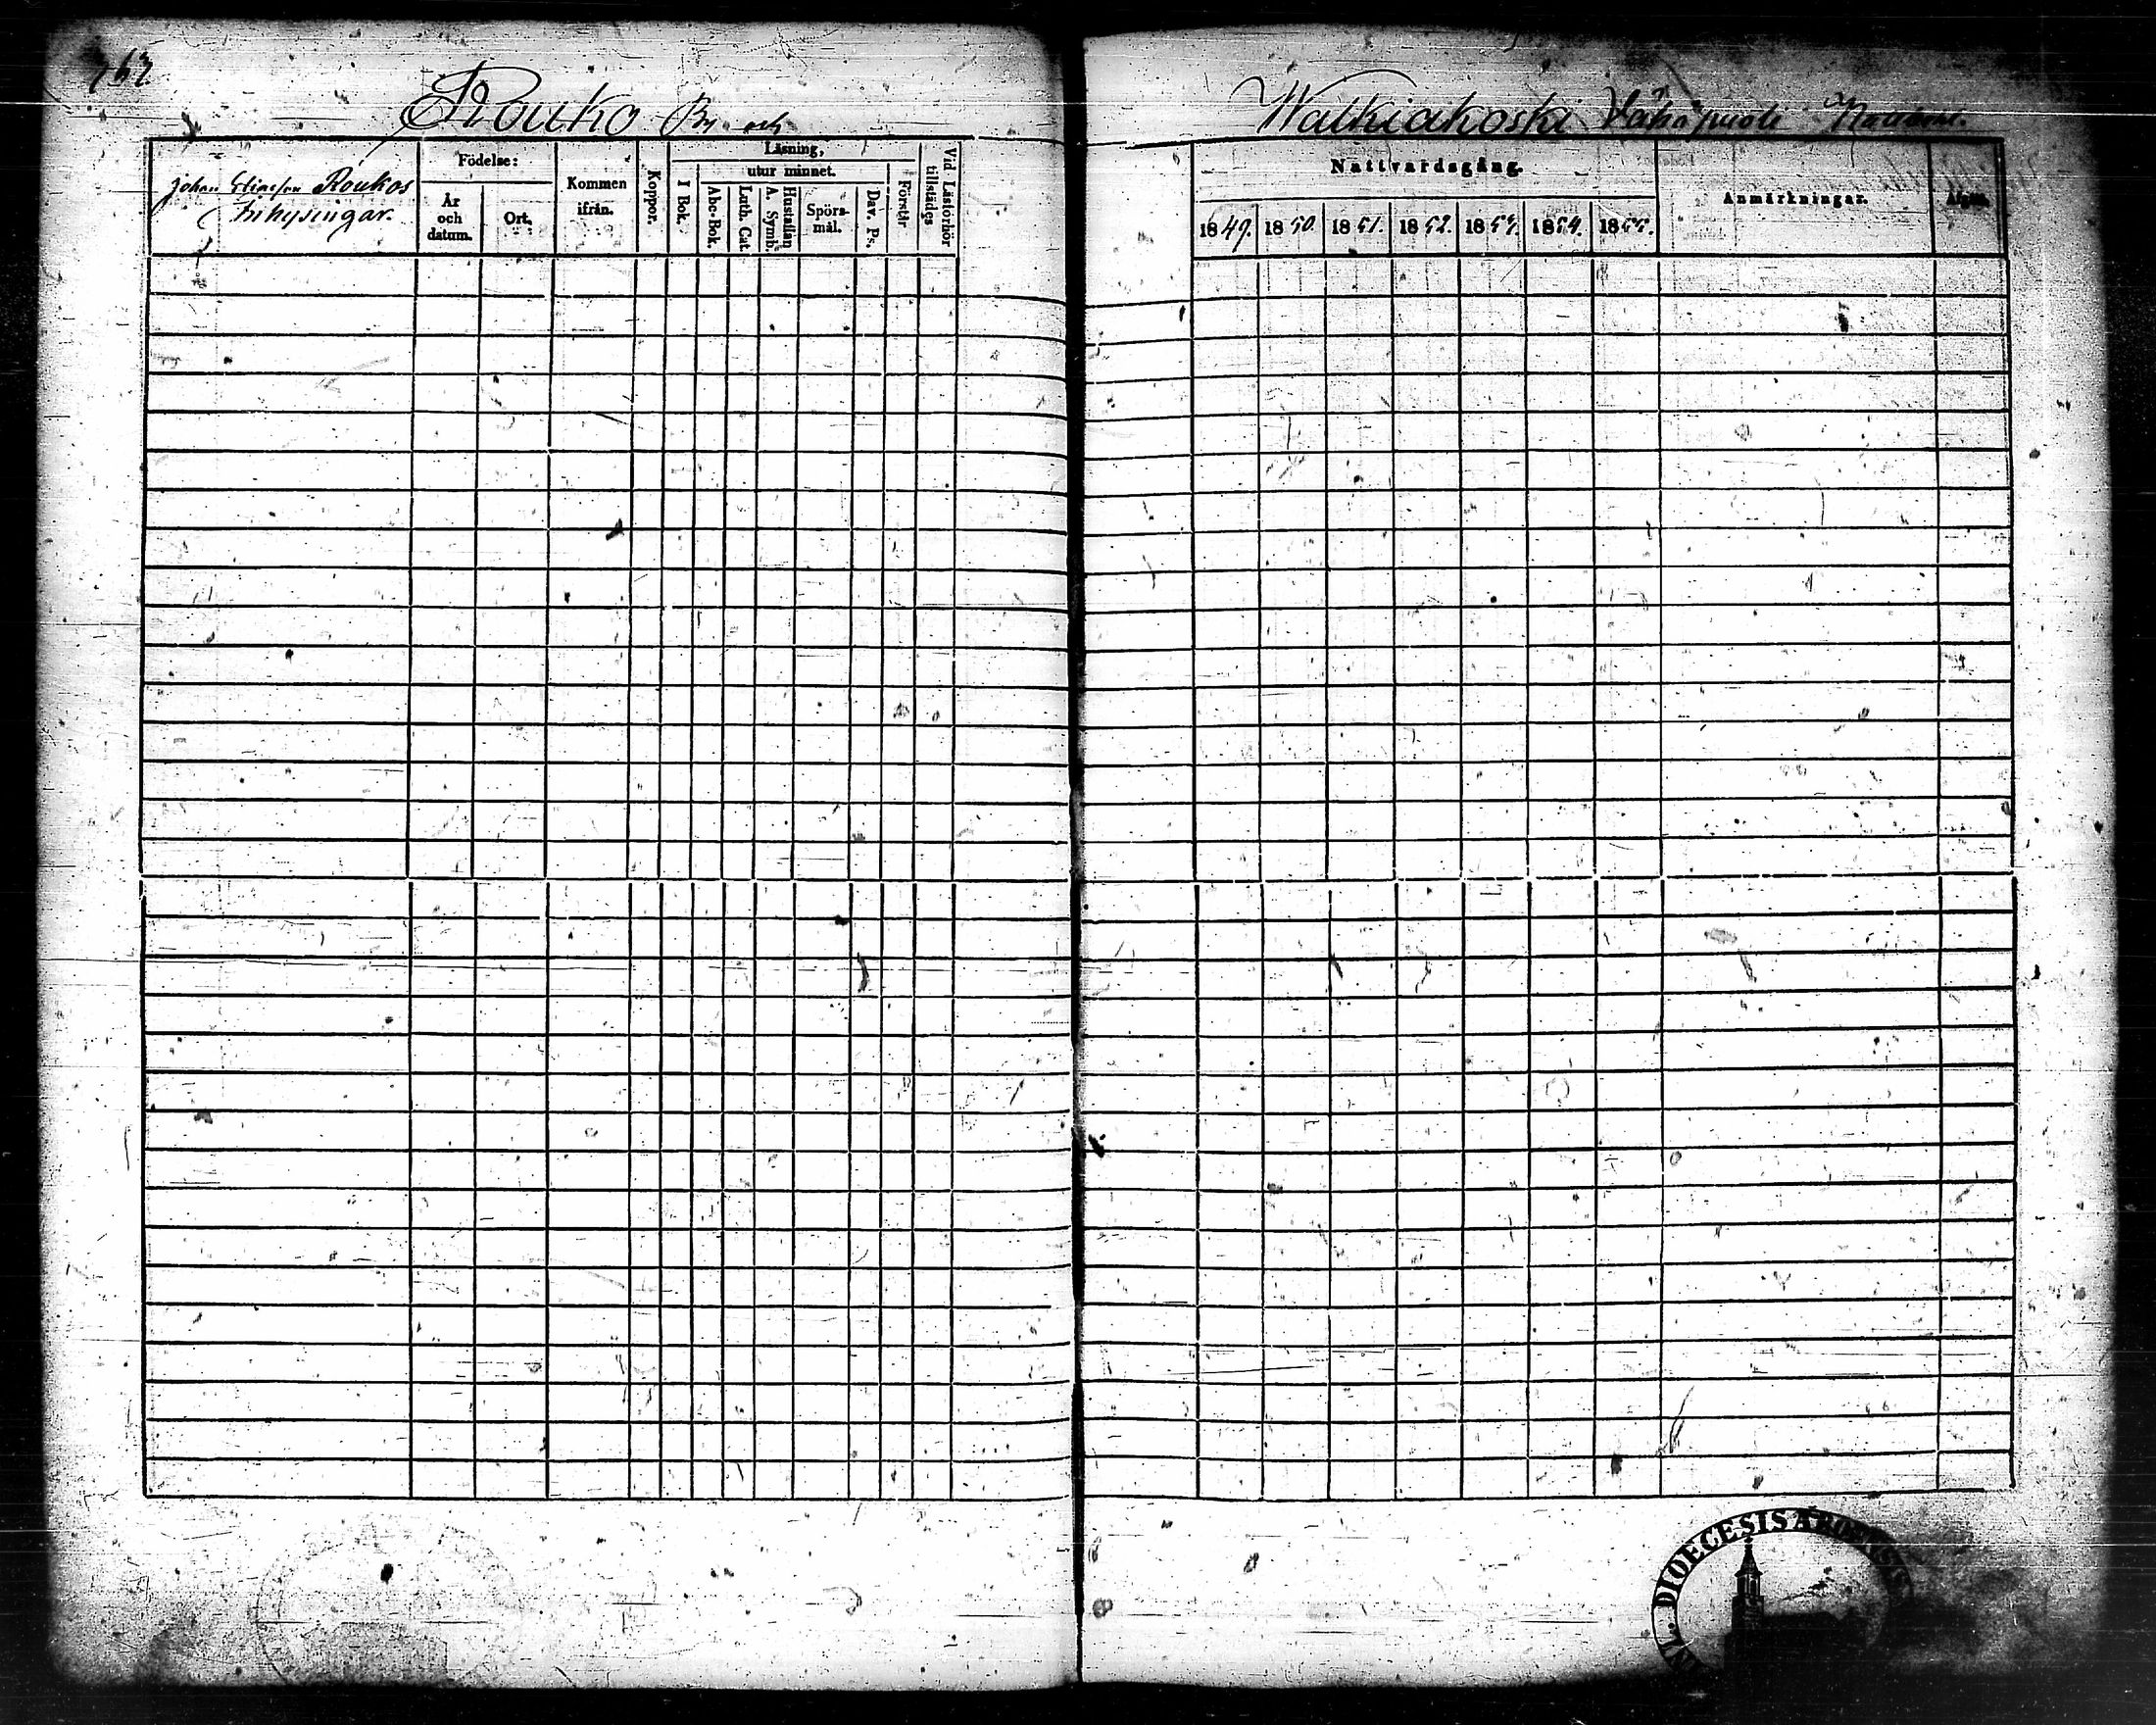 767
Rouko By och
Walkiakoski Vähäpuoli
Johan Eliasson Roukos
Inhysingar.
Födelse:
År och datum.
Ort.
Kommen ifrån.
Koppor.
Läsning,
utur minnet.
I Bok.
Abc-Bok.
Luth. Cat.
Hustaflan A. Symb.
Spörs-mål.
Dav. Ps.
Förstår
Vid Läsförhör tillstädes
Nattvardsgång.
1849. 1850. 1851. 1852. 1853. 1854. 1855.
Anmärkningar.
Afgått.
DIOECESIS ABOENSIS